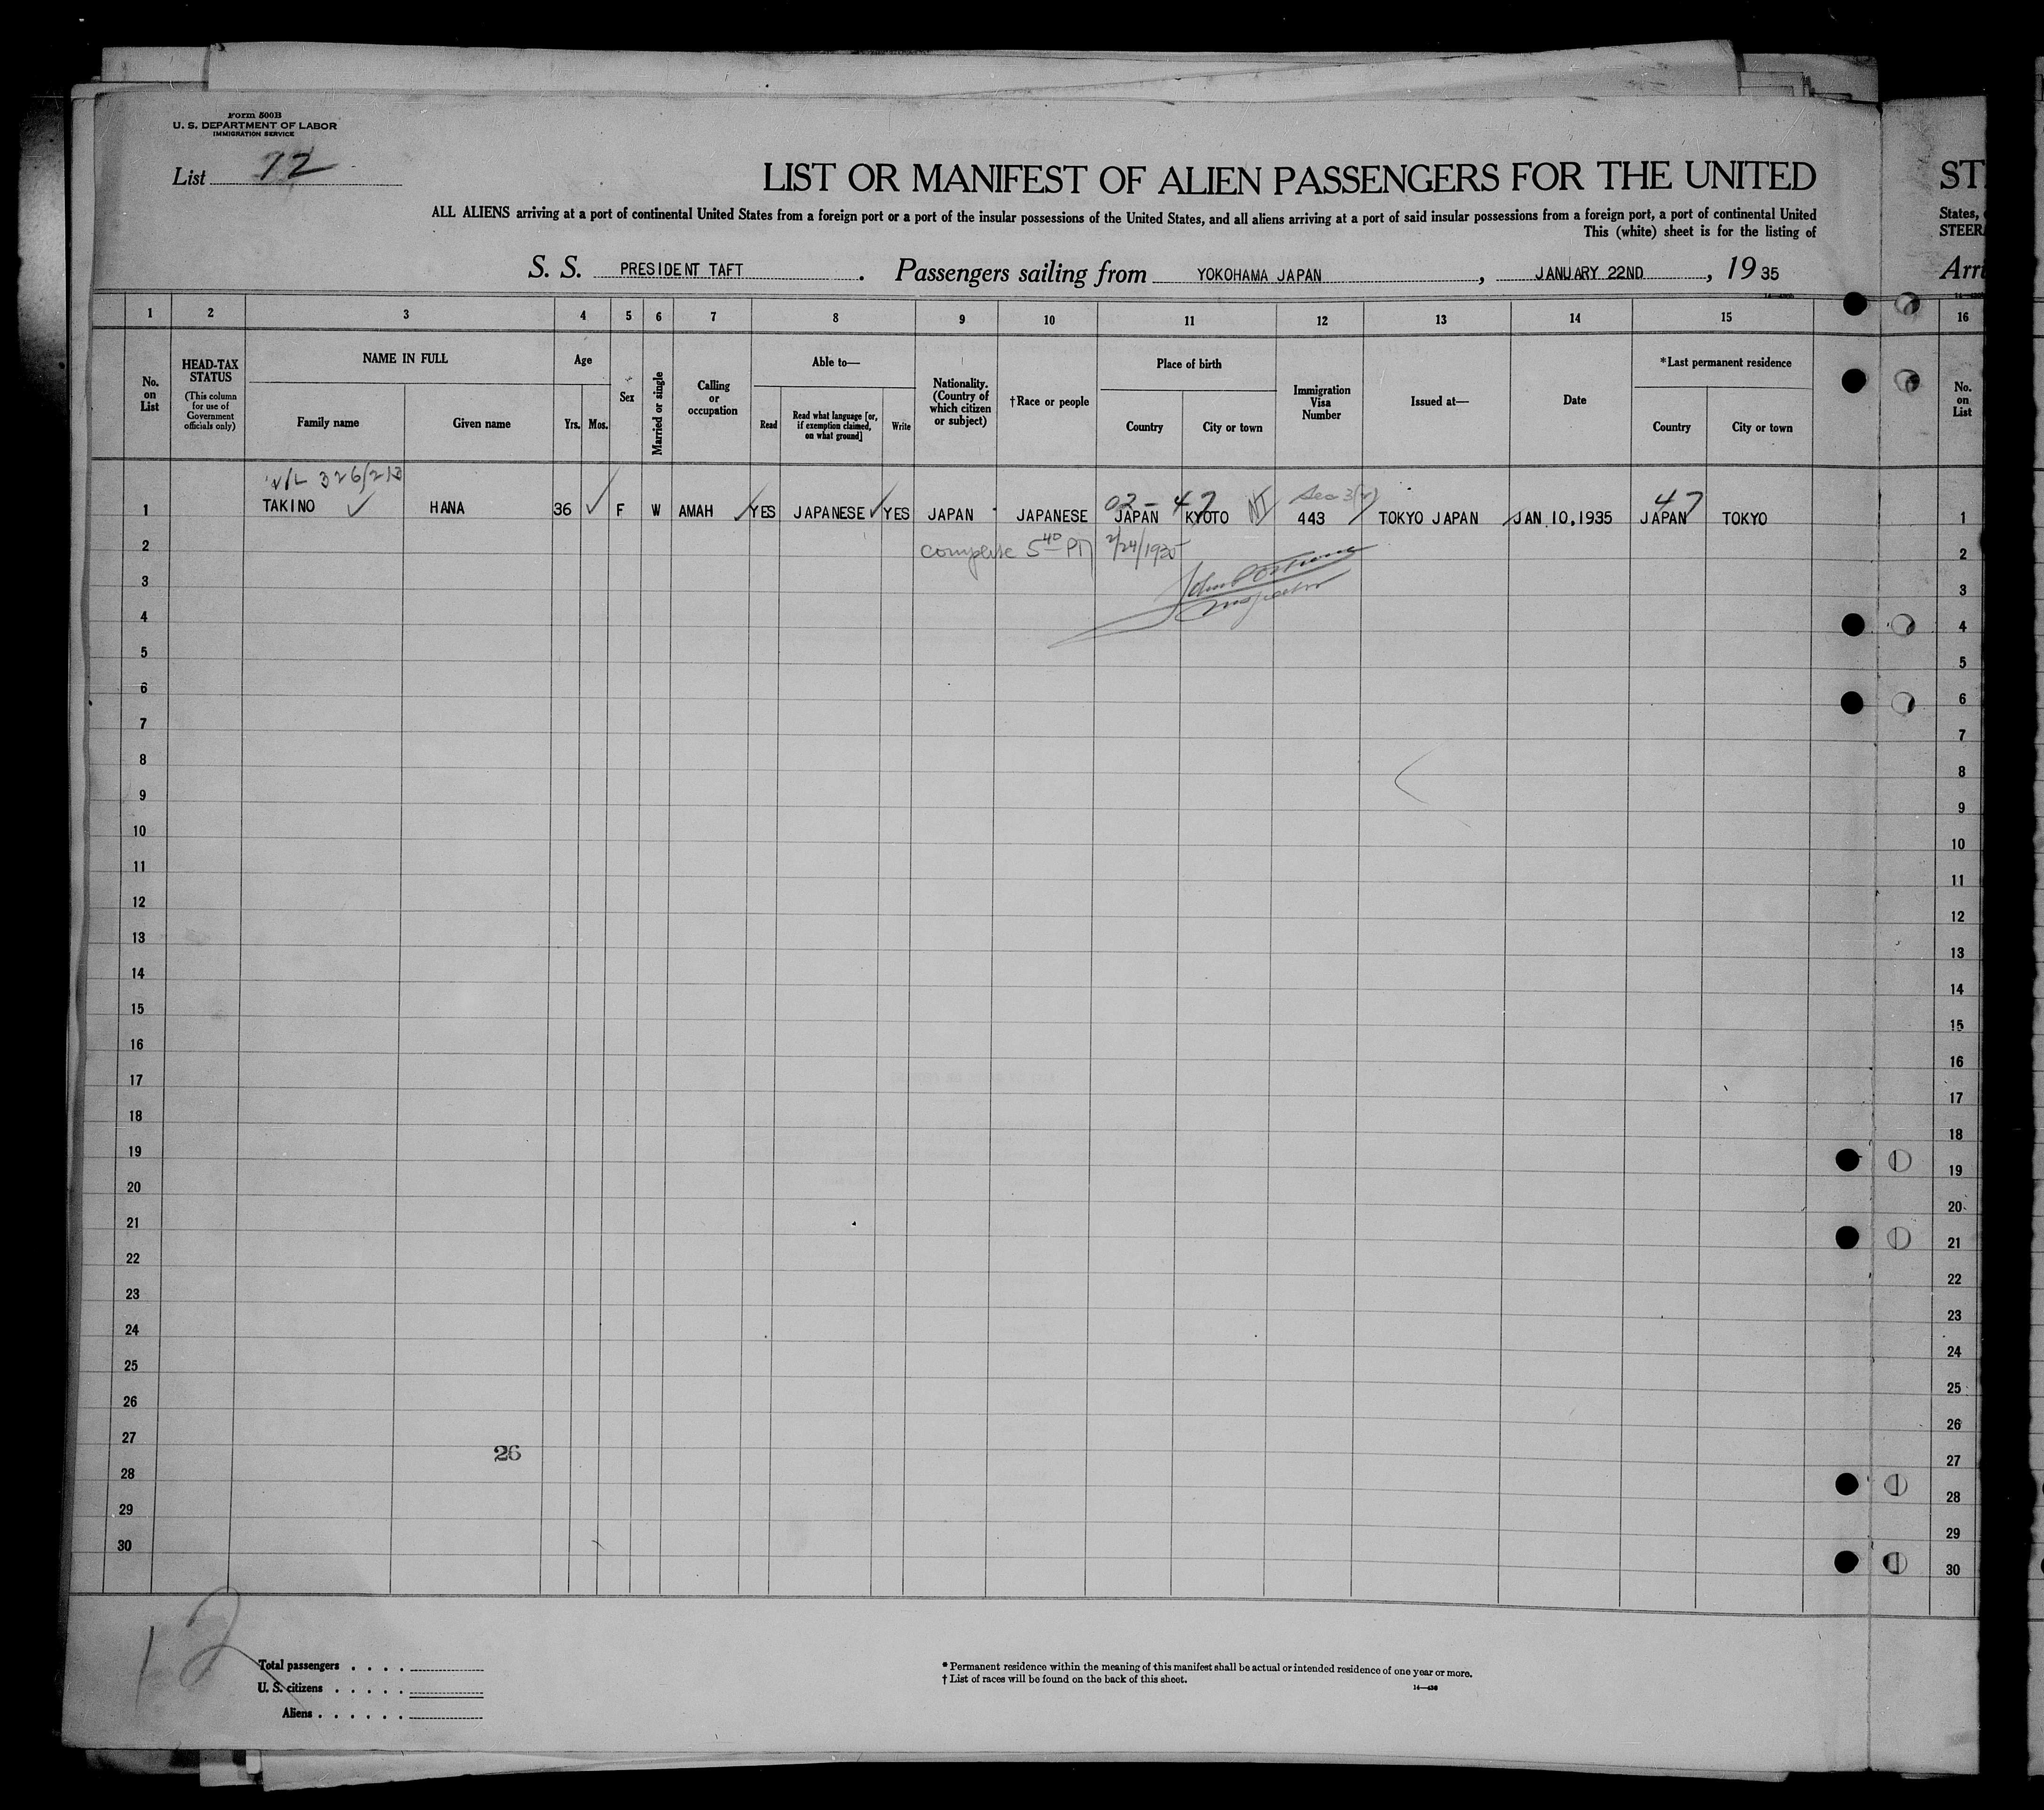 Form 500B
U. S. DEPARTMENT OF LABOR
IMMIGRATION SERVICE
List 12
LIST OR MANIFEST OF ALIEN PASSENGERS FOR THE UNITED
ALL ALIENS arriving at a port of continental United States from a foreign port or a port of the insular possessions of the United States, and all aliens arriving at a port of said insular possessions from a foreign port, a port of continental United
This (white) sheet is for the listing of
S. S. PRESIDENT TAFT . Passengers sailing from YOKOHAMA JAPAN , JANUARY 22ND , 19 35
ST
States,
STEER
Arri
1 2 3 4 5 6 7 8 9 10 11 12 13 14 15 16
No. on List
HEAD-TAX STATUS
(This column for use of Government officials only)
NAME IN FULL
Family name
Given name
Age
Yrs. Mos.
Sex
Married or single
Calling or occupation
Able to—
Read
Read what language [or, if exemption claimed, on what ground]
Write
Nationality. (Country of which citizen or subject)
†Race or people
Place of birth
Country
City or town
Immigration Visa Number
Issued at—
Date
*Last permanent residence
Country
City or town
No. on List
326/213
02 - 47
47
1 TAKINO HANA 36 F W AMAH YES JAPANESE YES JAPAN JAPANESE JAPAN KYOTO 443 TOKYO JAPAN JAN.10,1935 JAPAN TOKYO 1
2 complete 5 40 PM 2/24/1935 2
3 Inspector 3
4 4
5 5
6 6
7 7
8 8
9 9
10 10
11 11
12 12
13 13
14 14
15 15
16 16
17 17
18 18
19 19
20 20
21 21
22 22
23 23
24 24
25 25
26 26
27 27
26
28 28
29 29
30 30
12
Total passengers . . . .
U. S. citizens . . . . .
Aliens . . . . . .
* Permanent residence within the meaning of this manifest shall be actual or intended residence of one year or more.
† List of races will be found on the back of this sheet.